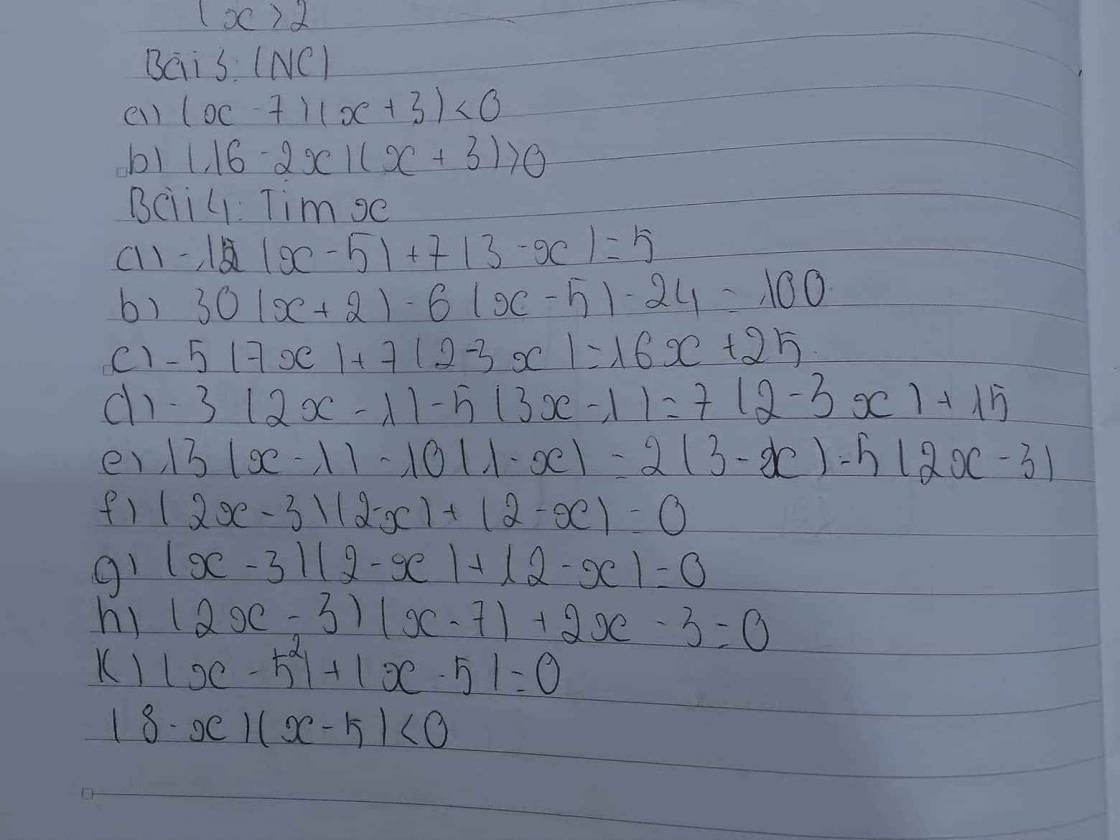 (x > 2
Bài 3: (NC)
a) (x - 7)(x + 3) < 0
b) (16 - 2x)(x + 3) > 0
Bài 4: Tìm x
a) -12 (x - 5) + 7 (3 - x) = 5
b) 30 (x + 2) - 6 (x - 5) - 24 = 100
c) -5 (7x) + 7 (2-3x) = 16x + 25
d) -3 (2x - 1) - 5 (3x - 1) = 7 (2 - 3x) + 15
e) 13 (x - 1) - 10 (1 - x) = 2 (3 - x) - 5 (2x - 3)
f) (2x - 3)(2-x) + (2 - x) = 0
g) (x - 3)(2 - x) + (2 - x) = 0
h) (2x - 3)(x - 7) + 2x - 3 = 0
k) (x - 5²) + (x - 5) = 0
(8 - x)(x - 5) < 0